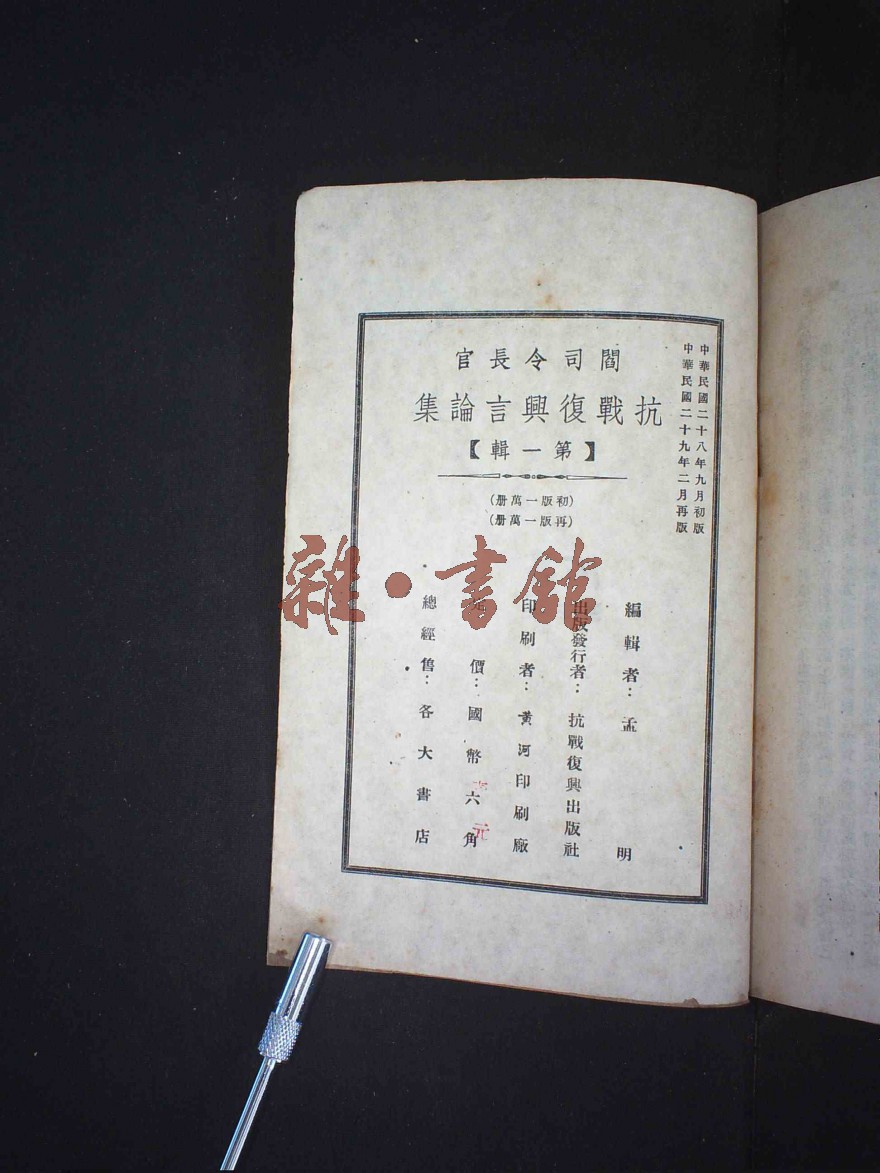 中華民國二十八年九月初版
中華民國二十九年二月再版
閻司令長官
抗戰復興言論集
【第一輯】
(初版一萬册)
(再版一萬册)
編輯者：孟明
出版發行者：抗戰復興出版社
印刷者：黃河印刷廠
價：國幣六角
元
總經售：各大書店
雜·書館